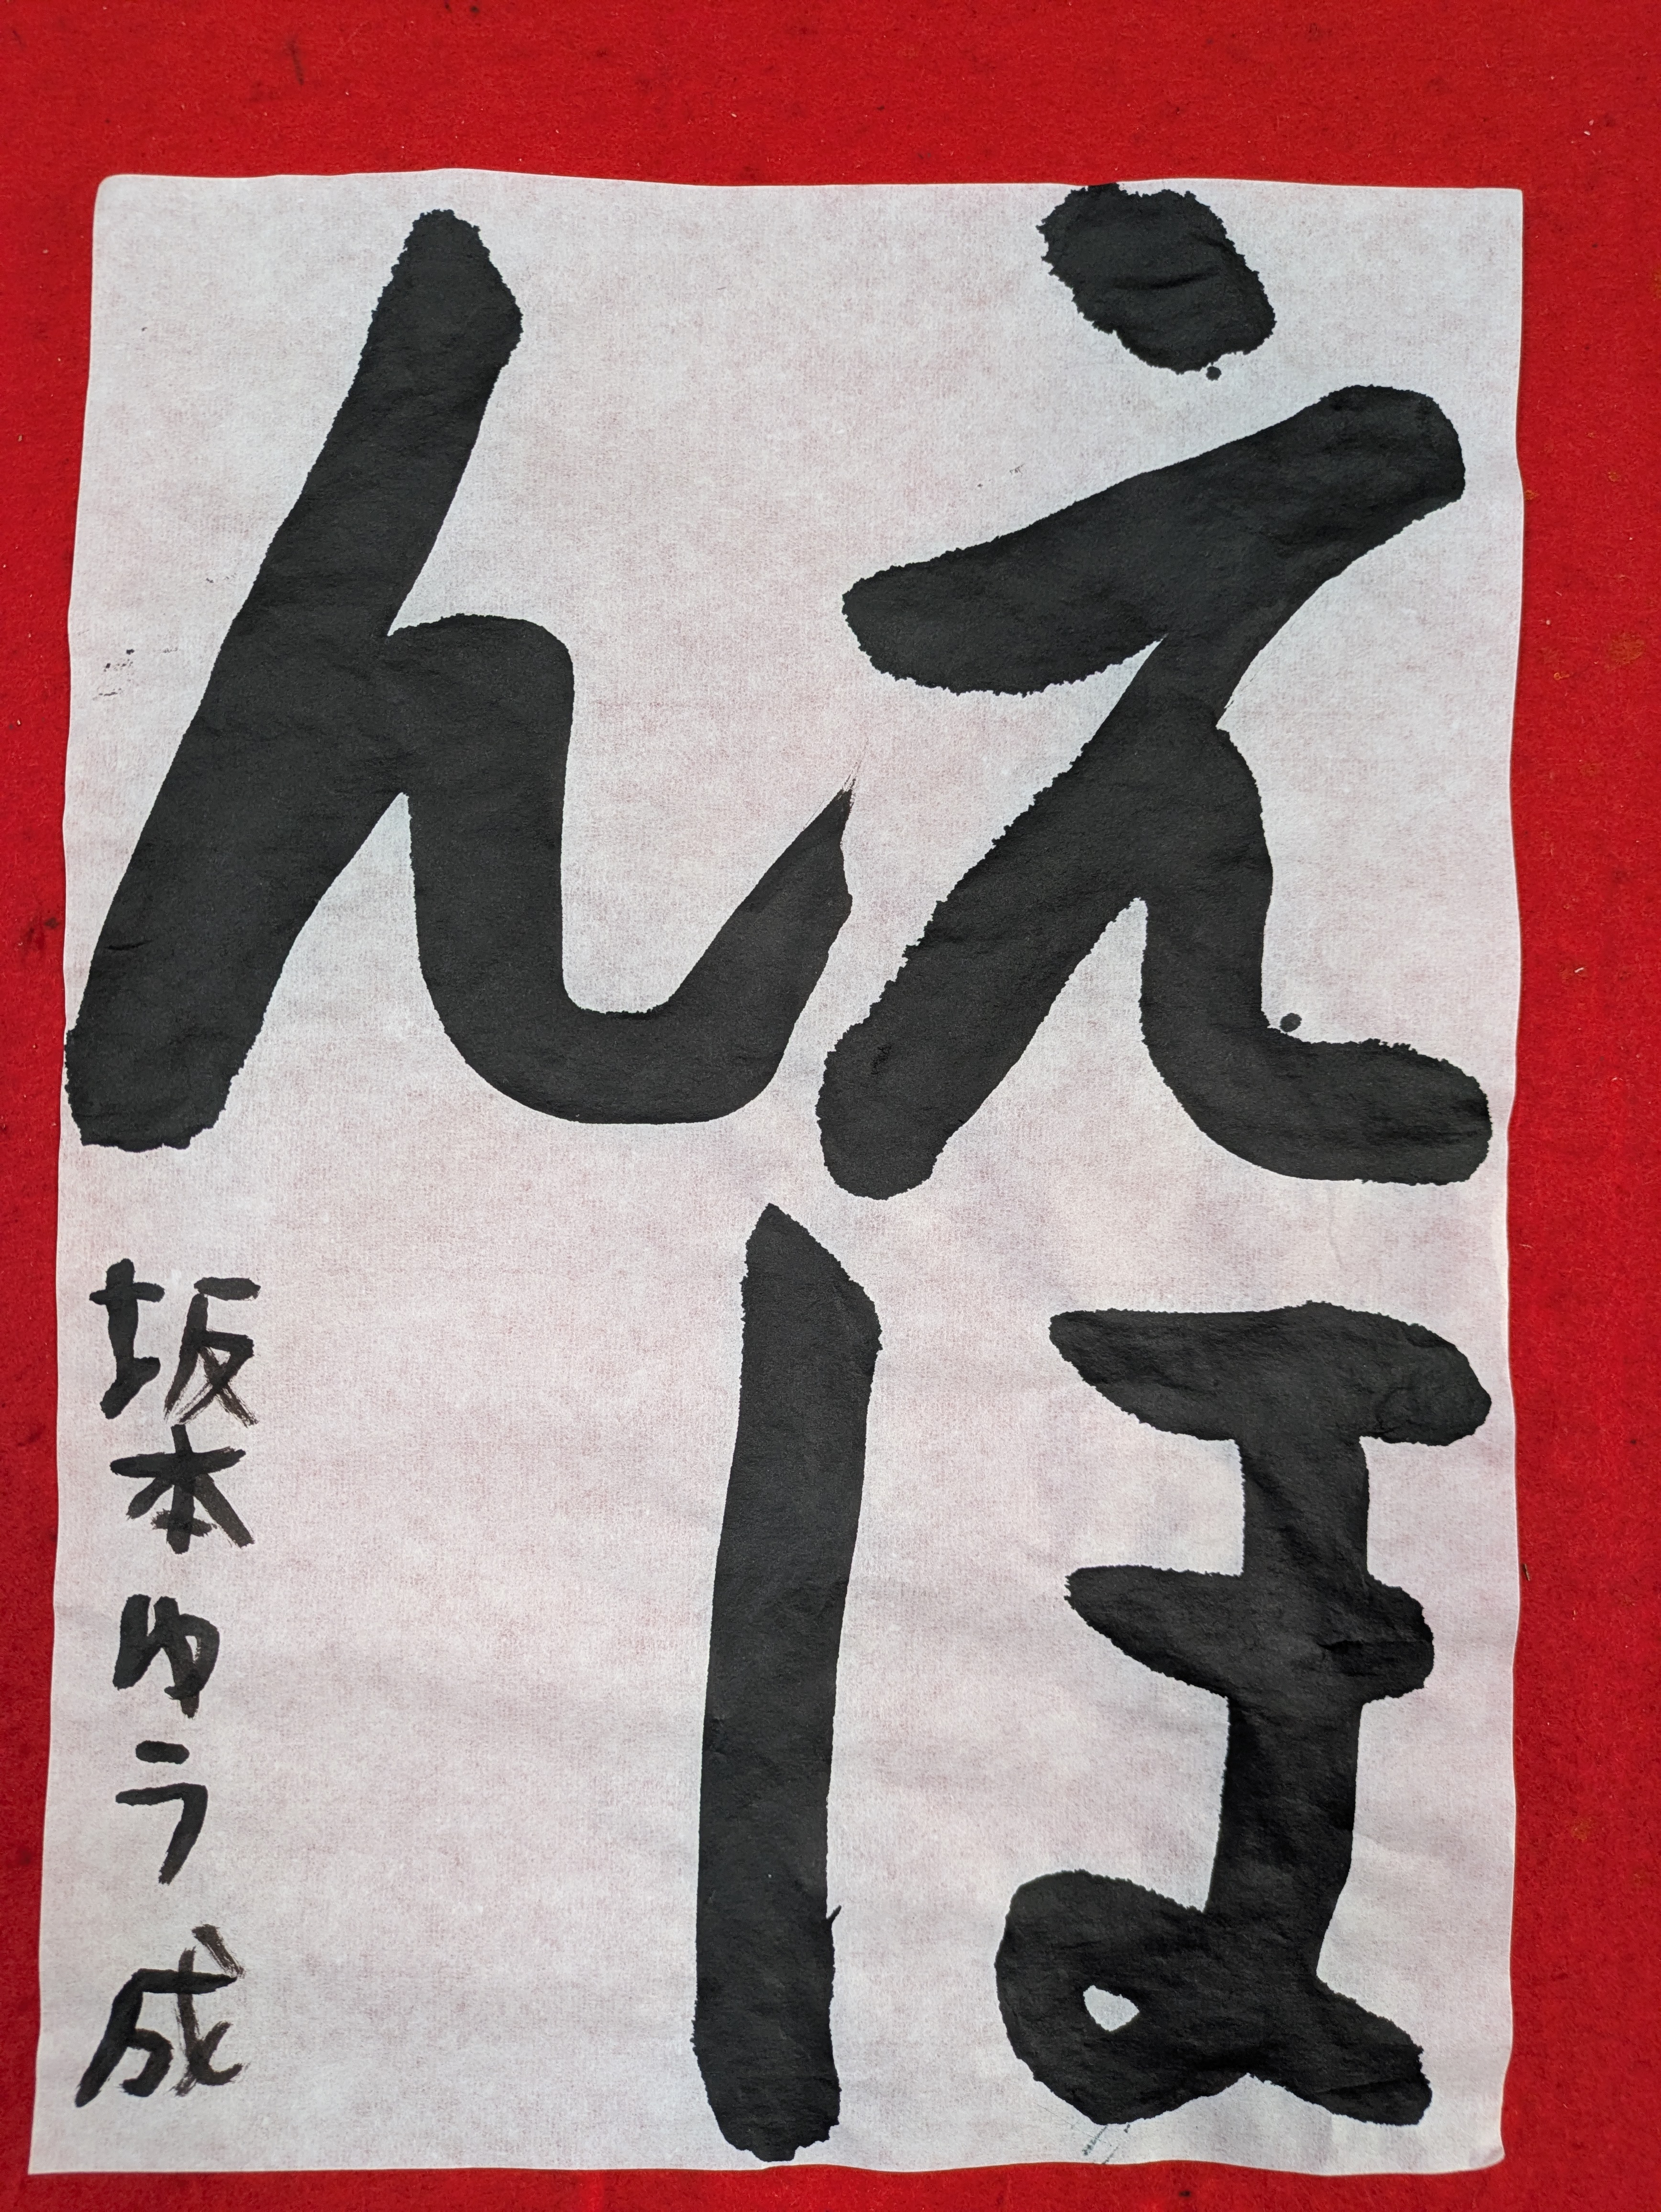 えほ
ん
坂本ゆう成